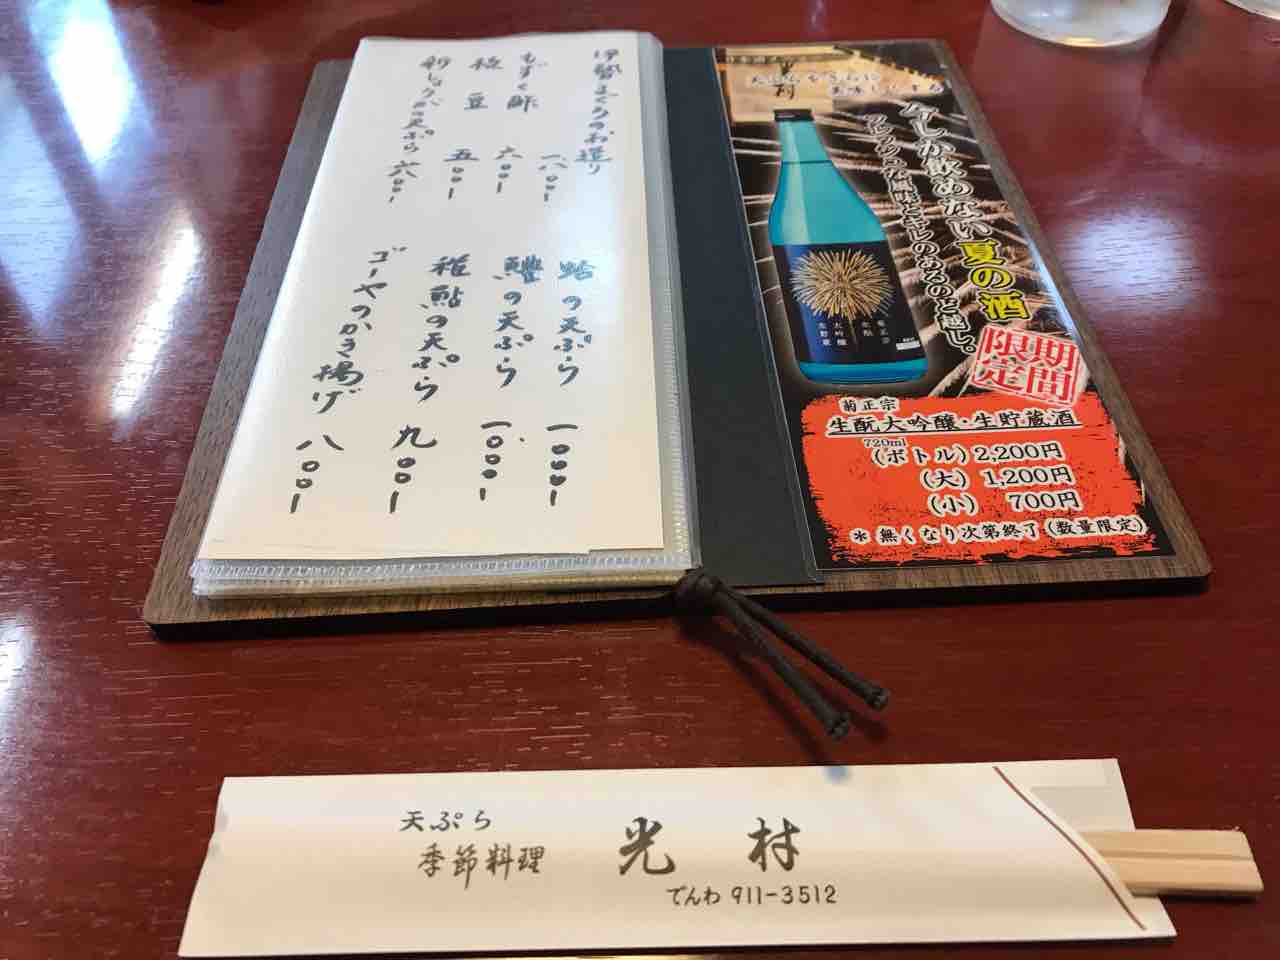 伊勢まぐろのお造り 一八〇〇-
もずく酢 六〇〇-
枝豆 五〇〇-
新しょうがの天ぷら 六〇〇-
蛤の天ぷら 一〇〇〇-
鱧の天ぷら 一〇〇〇-
稚鮎の天ぷら 九〇〇-
ゴーヤのかき揚げ 八〇〇-
美味しくする
今しか飲めない夏の酒
フレッシュな風味とキレのあるのど越し。
期間限定
菊正宗
生酛大吟醸・生貯蔵酒
720ml
(ボトル) 2,200円
(大) 1,200円
(小) 700円
*無くなり次第終了(数量限定)
天ぷら
季節料理
光村
でんわ 911-3512